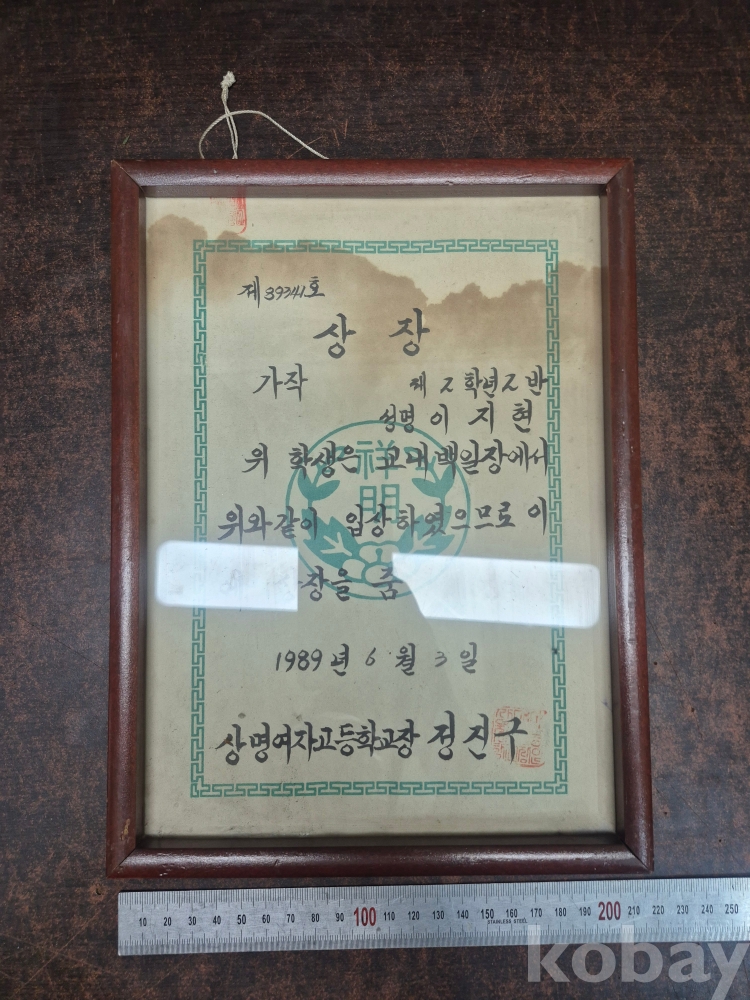 제39341호
상 장
가작 제 2 학년 2 반
성명 이 지 현
祥明
위 학생은 교내 백일장에서
위와 같이 입상하였으므로 이
장을 줌
1989년 6월 3일
상명여자고등학교장 정진구
10 20 30 40 50 60 70 80 90 100 110 120 130 140 150 160 170 180 190 200 210 220 230 240 250
STAINLESS STEEL
kobay